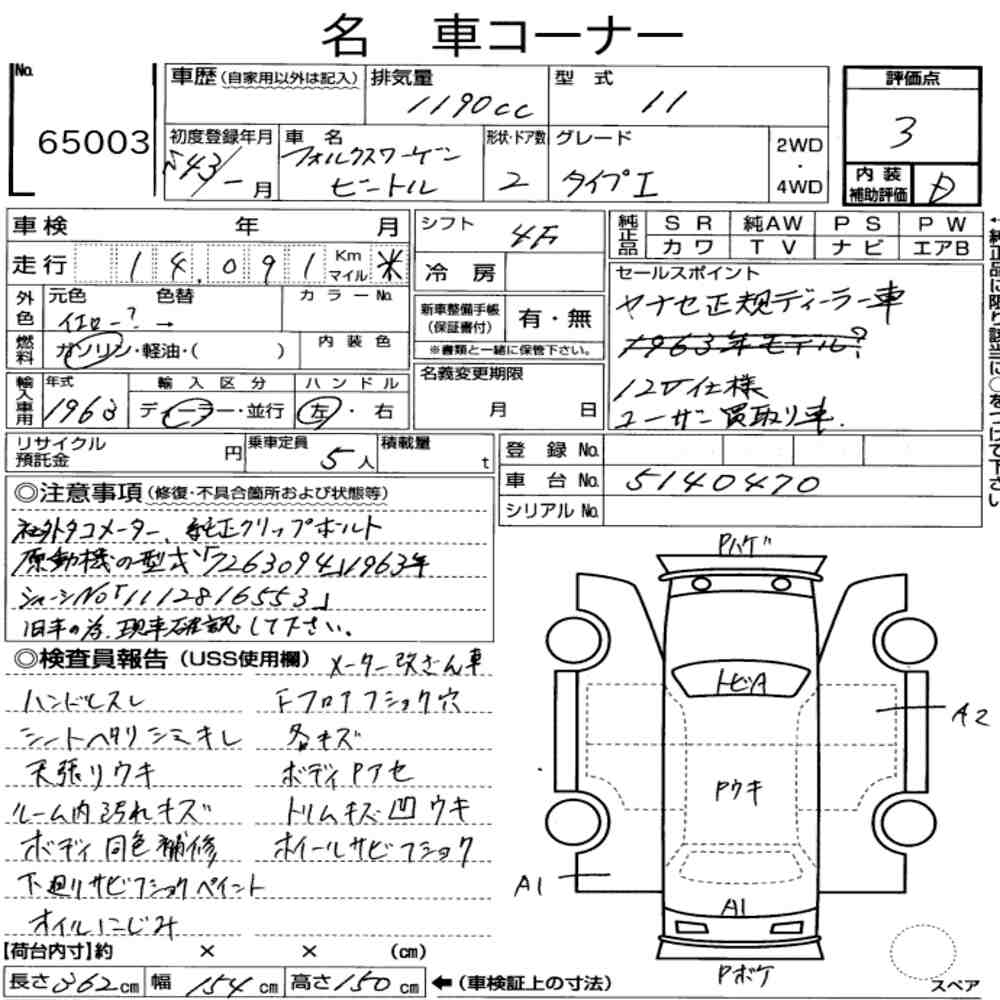 名 車コーナー
No. 65003
車歴(自家用以外は記入)
排気量 1190cc
型式 11
評価点 3
初度登録年月 S43/-月
車名 フォルクスワーゲン
ビートル
形状・ドア数 2
グレード タイプI
2WD・4WD
内装補助評価 D
車検 年 月
シフト 4F
純正品 SR 純AW PS PW
カワ TV ナビ エアB
走行 14,091 Km マイル *
冷房
セールスポイント
ヤナセ正規ディーラー車
1963年モデル?
12V仕様
ユーザー買取り車.
←純正品に限り該当に○をつけて下さい
外色 元色 色替 カラーNo.
イエロー? →
新車整備手帳(保証書付) 有・無
※書類と一緒に保管下さい。
燃料 ガソリン・軽油・( )
内装色
名義変更期限
月 日
輸入車用 年式 1963
輸入区分 ディーラー・並行
ハンドル 左・右
リサイクル預託金 円
乗車定員 5人
積載量 t
登録No.
車台No. 5140470
シリアルNo.
◎注意事項(修復・不具合箇所および状態等)
社外タコメーター、純正クリップボルト
原動機の型式「7263094」1963年
シャーシNo「1112816553」
旧車の為、現車確認して下さい。
◎検査員報告(USS使用欄) メーター改ざん車
ハンドルスレ
Fフロアフショク穴
シートヘタリシミキレ
各キズ
天張りウキ
ボディPアセ
ルーム内汚れキズ
トリムキズ凹ウキ
ボディ同色補修
ホイールサビフショク
下廻りサビフショクペイント
オイルにじみ
Pハゲ
トビA
A2
Pウキ
A1
A1
Pボケ
スペア
【荷台内寸】約 × × (cm)
長さ362cm 幅154cm 高さ150cm ←(車検証上の寸法)